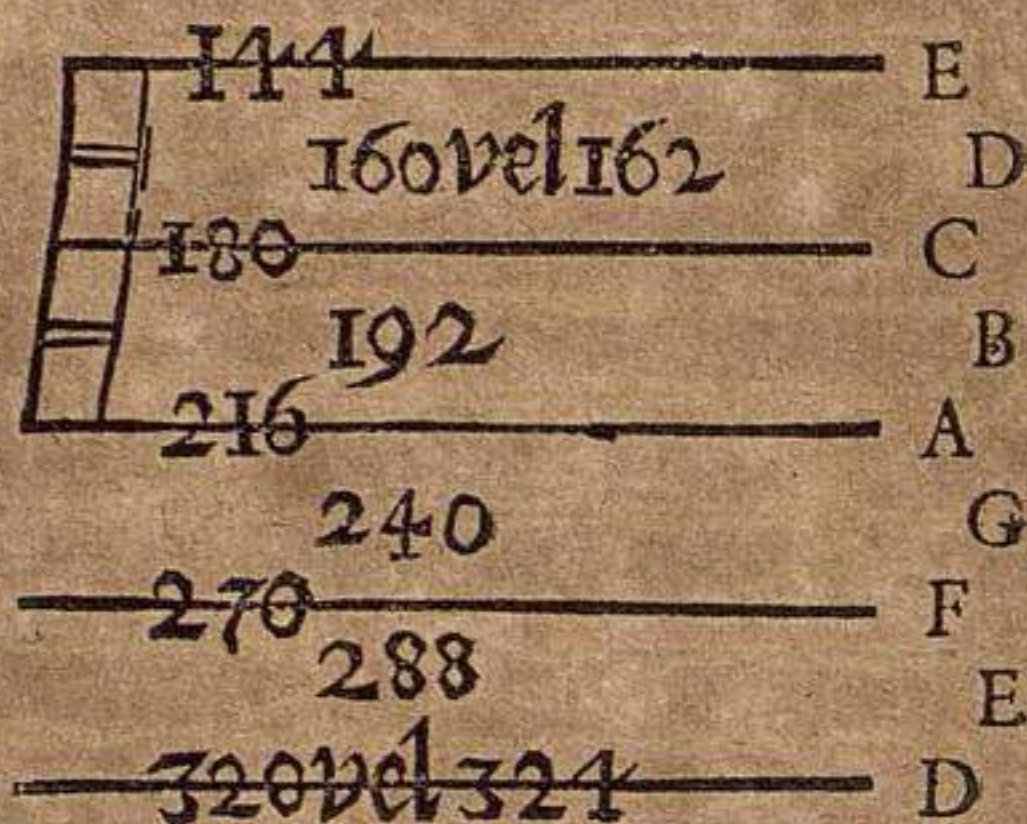 144 E
160 vel 162 D
180 C
192 B
216 A
240 G
270 F
288 E
320 vel 324 D